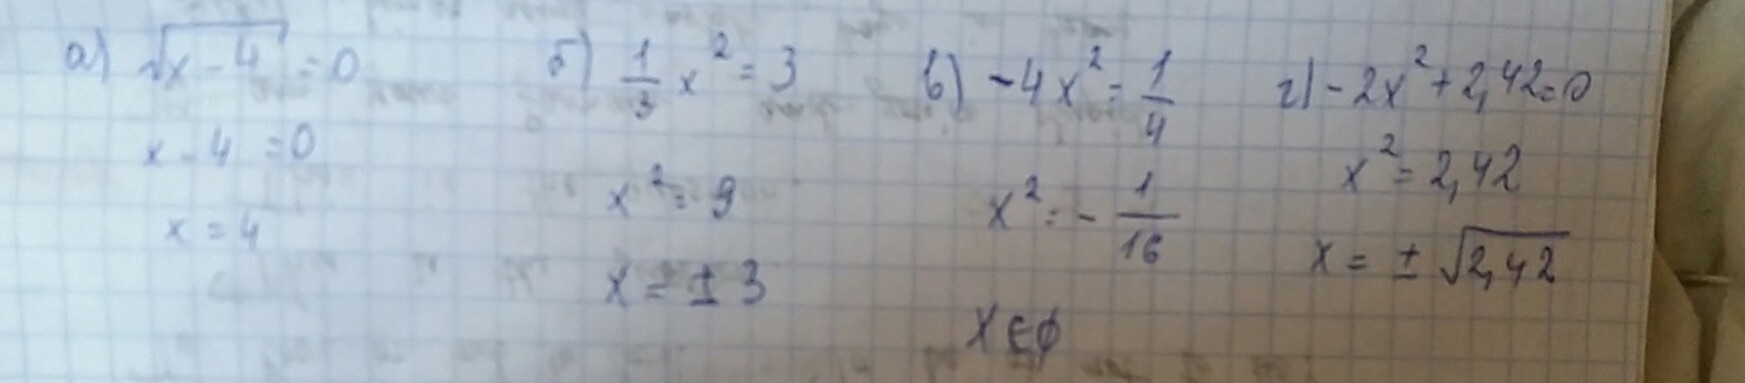 а) √(x - 4) = 0
x - 4 = 0
x = 4
б) 1/3 x² = 3
x² = 9
x = ± 3
в) -4x² = 1/4
x² = - 1/16
x ∈ ∅
г) -2x² + 2,42 = 0
x² = 2,42
x = ± √2,42